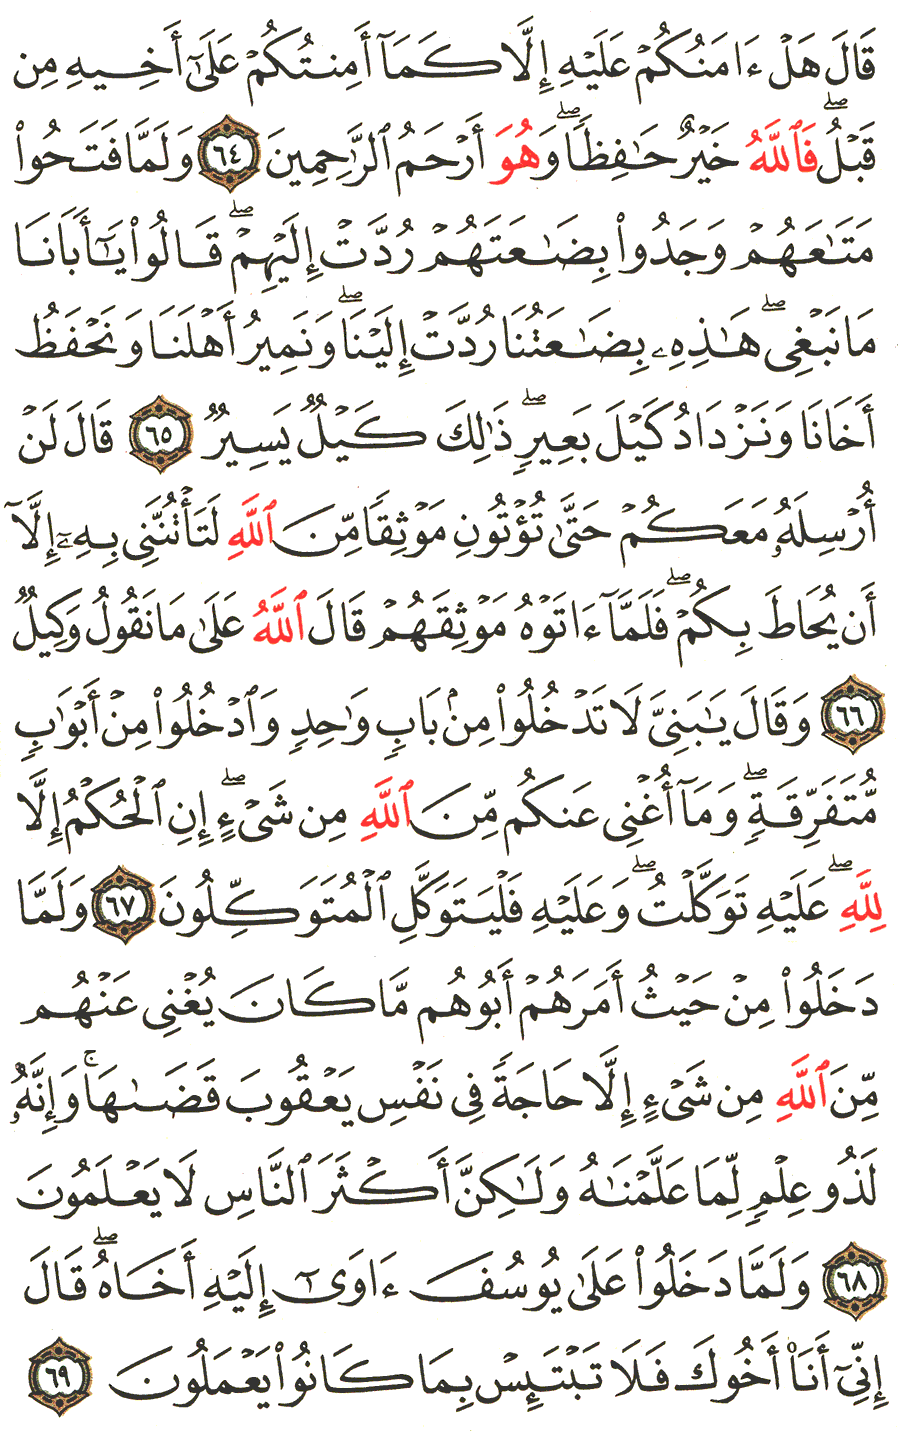 قَالَ هَلْ ءَامَنُكُمْ عَلَيْهِ إِلَّا كَمَآ أَمِنتُكُمْ عَلَىٰٓ أَخِيهِ مِن
قَبْلُ ۖ فَٱللَّهُ خَيْرٌ حَـٰفِظًا ۖ وَهُوَ أَرْحَمُ ٱلرَّٰحِمِينَ ٦٤ وَلَمَّا فَتَحُوا۟
مَتَـٰعَهُمْ وَجَدُوا۟ بِضَـٰعَتَهُمْ رُدَّتْ إِلَيْهِمْ ۖ قَالُوا۟ يَـٰٓأَبَانَا
مَا نَبْغِى ۖ هَـٰذِهِۦ بِضَـٰعَتُنَا رُدَّتْ إِلَيْنَا ۖ وَنَمِيرُ أَهْلَنَا وَنَحْفَظُ
أَخَانَا وَنَزْدَادُ كَيْلَ بَعِيرٍ ۖ ذَٰلِكَ كَيْلٌ يَسِيرٌ ٦٥ قَالَ لَنْ
أُرْسِلَهُۥ مَعَكُمْ حَتَّىٰ تُؤْتُونِ مَوْثِقًا مِّنَ ٱللَّهِ لَتَأْتُنَّنِى بِهِۦٓ إِلَّآ
أَن يُحَاطَ بِكُمْ ۖ فَلَمَّآ ءَاتَوْهُ مَوْثِقَهُمْ قَالَ ٱللَّهُ عَلَىٰ مَا نَقُولُ وَكِيلٌ
٦٦ وَقَالَ يَـٰبَنِىَّ لَا تَدْخُلُوا۟ مِنۢ بَابٍ وَٰحِدٍ وَٱدْخُلُوا۟ مِنْ أَبْوَٰبٍ
مُّتَفَرِّقَةٍ ۖ وَمَآ أُغْنِى عَنكُم مِّنَ ٱللَّهِ مِن شَىْءٍ ۖ إِنِ ٱلْحُكْمُ إِلَّا
لِلَّهِ ۖ عَلَيْهِ تَوَكَّلْتُ ۖ وَعَلَيْهِ فَلْيَتَوَكَّلِ ٱلْمُتَوَكِّلُونَ ٦٧ وَلَمَّا
دَخَلُوا۟ مِنْ حَيْثُ أَمَرَهُمْ أَبُوهُم مَّا كَانَ يُغْنِى عَنْهُم
مِّنَ ٱللَّهِ مِن شَىْءٍ إِلَّا حَاجَةً فِى نَفْسِ يَعْقُوبَ قَضَىٰهَا ۚ وَإِنَّهُۥ
لَذُو عِلْمٍ لِّمَا عَلَّمْنَـٰهُ وَلَـٰكِنَّ أَكْثَرَ ٱلنَّاسِ لَا يَعْلَمُونَ
٦٨ وَلَمَّا دَخَلُوا۟ عَلَىٰ يُوسُفَ ءَاوَىٰٓ إِلَيْهِ أَخَاهُ ۖ قَالَ
إِنِّىٓ أَنَا۠ أَخُوكَ فَلَا تَبْتَئِسْ بِمَا كَانُوا۟ يَعْمَلُونَ ٦٩